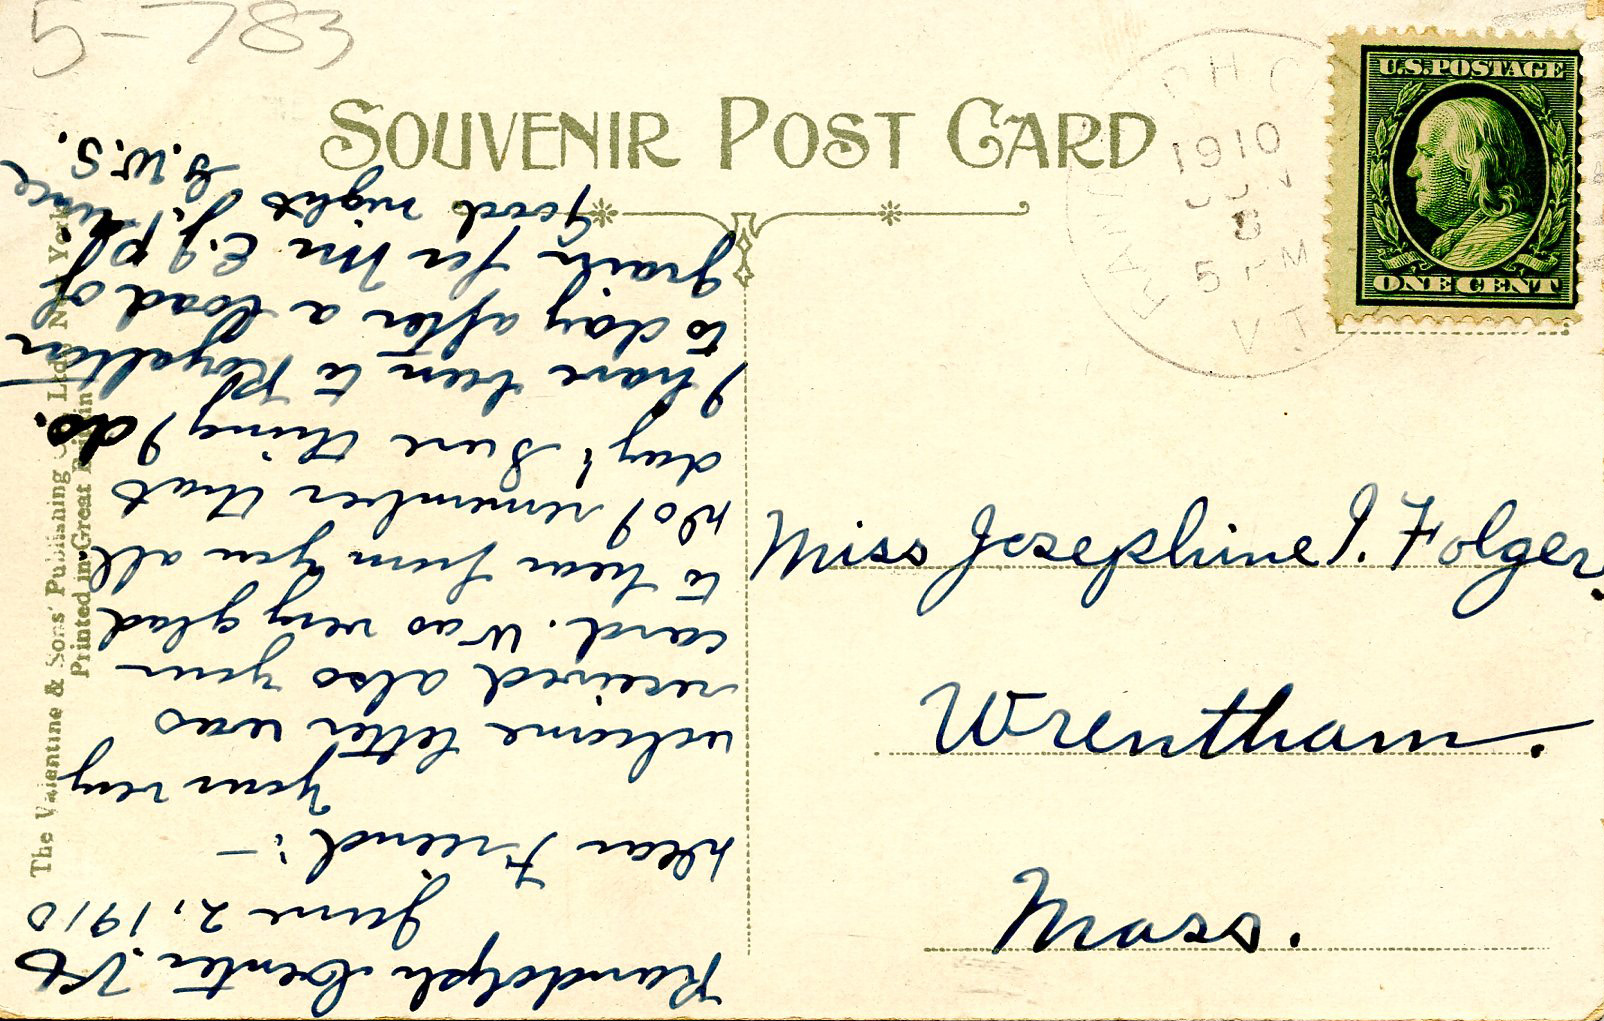 5-783
SOUVENIR POST CARD
RANDOLPH C
1910
JUN
3
5 PM
VT
U.S. POSTAGE
ONE CENT
Randolph Center, Vt
June 2, 1910
Dear Friend:-
Your very
welcome letter was
received also your
card. Was very glad
to hear from you all
Do I remember that
day? Sure thing I do.
I have been to Royalton
to day after a load of
grain for Mr E. J.
Good night
G.W.S.
Miss Josephine I. Folger.
Wrentham.
Mass.
The Valentine & Sons' Publishing Co. Ltd. New York
Printed in Great Britain